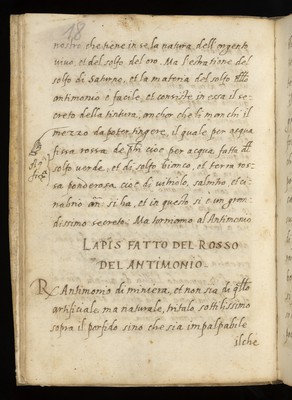 18
nostro che tiene in se la natura dell'argento
vivo, et del solfo del oro. Ma l'estratione del
solfo di Saturno, et la materia del solfo dello
antimonio è facile, et consiste in essa il se-
creto della tintura, anchor che li manchi il
mezzo da poter tingere, il quale per acqua
fissa rossa cioè per acque fatta di
solfo verde, et di solfo bianco, et terra ros-
sa ponderosa, cioè di vitriolo, salnitro et ci-
nabrio si ha, et in questo si è un gran-
dissimo secreto. Ma torniamo al Antimonio
LAPIS FATTO DEL ROSSO
DEL ANTIMONIO.
Antimonio di minera, et non sia di
artificiale ma naturale, tritalo sottilissimo
sopra il porfido sino che sia impalpabile
ilche